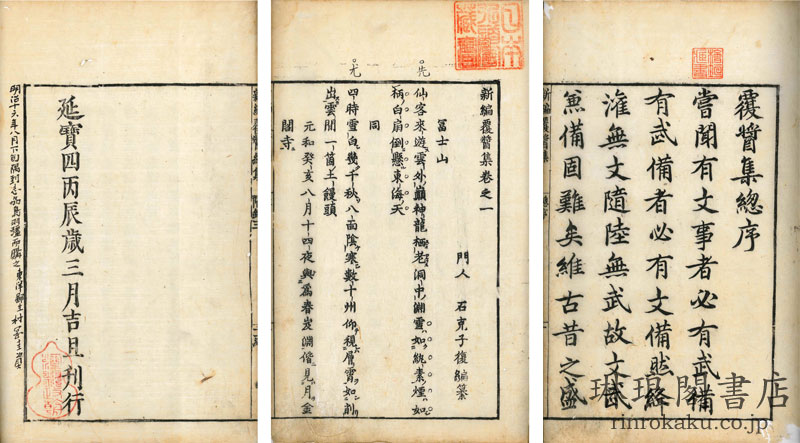 覆醬集總序
嘗聞有文事者必有武備
有武備者必有文備然絳
灌無文隨陸無武故文武
兼備固難矣維古昔之盛
新編覆醬集卷之一
門人 石克子復編纂
冨士山
仙客來遊雲外巔神龍栖老洞中淵雪如紈素煙如
柄白扇倒懸東海天
同
四時雪白幾千秋八面陰寒數十州仰視層霄如削
出雲間一箇土饅頭
元和癸亥八月十四夜與為春炭淵偕見月金
閣寺
延寶四丙辰歳三月吉旦刊行
明治十六年八月下旬
琳琅閣書店
rinrokaku.co.jp